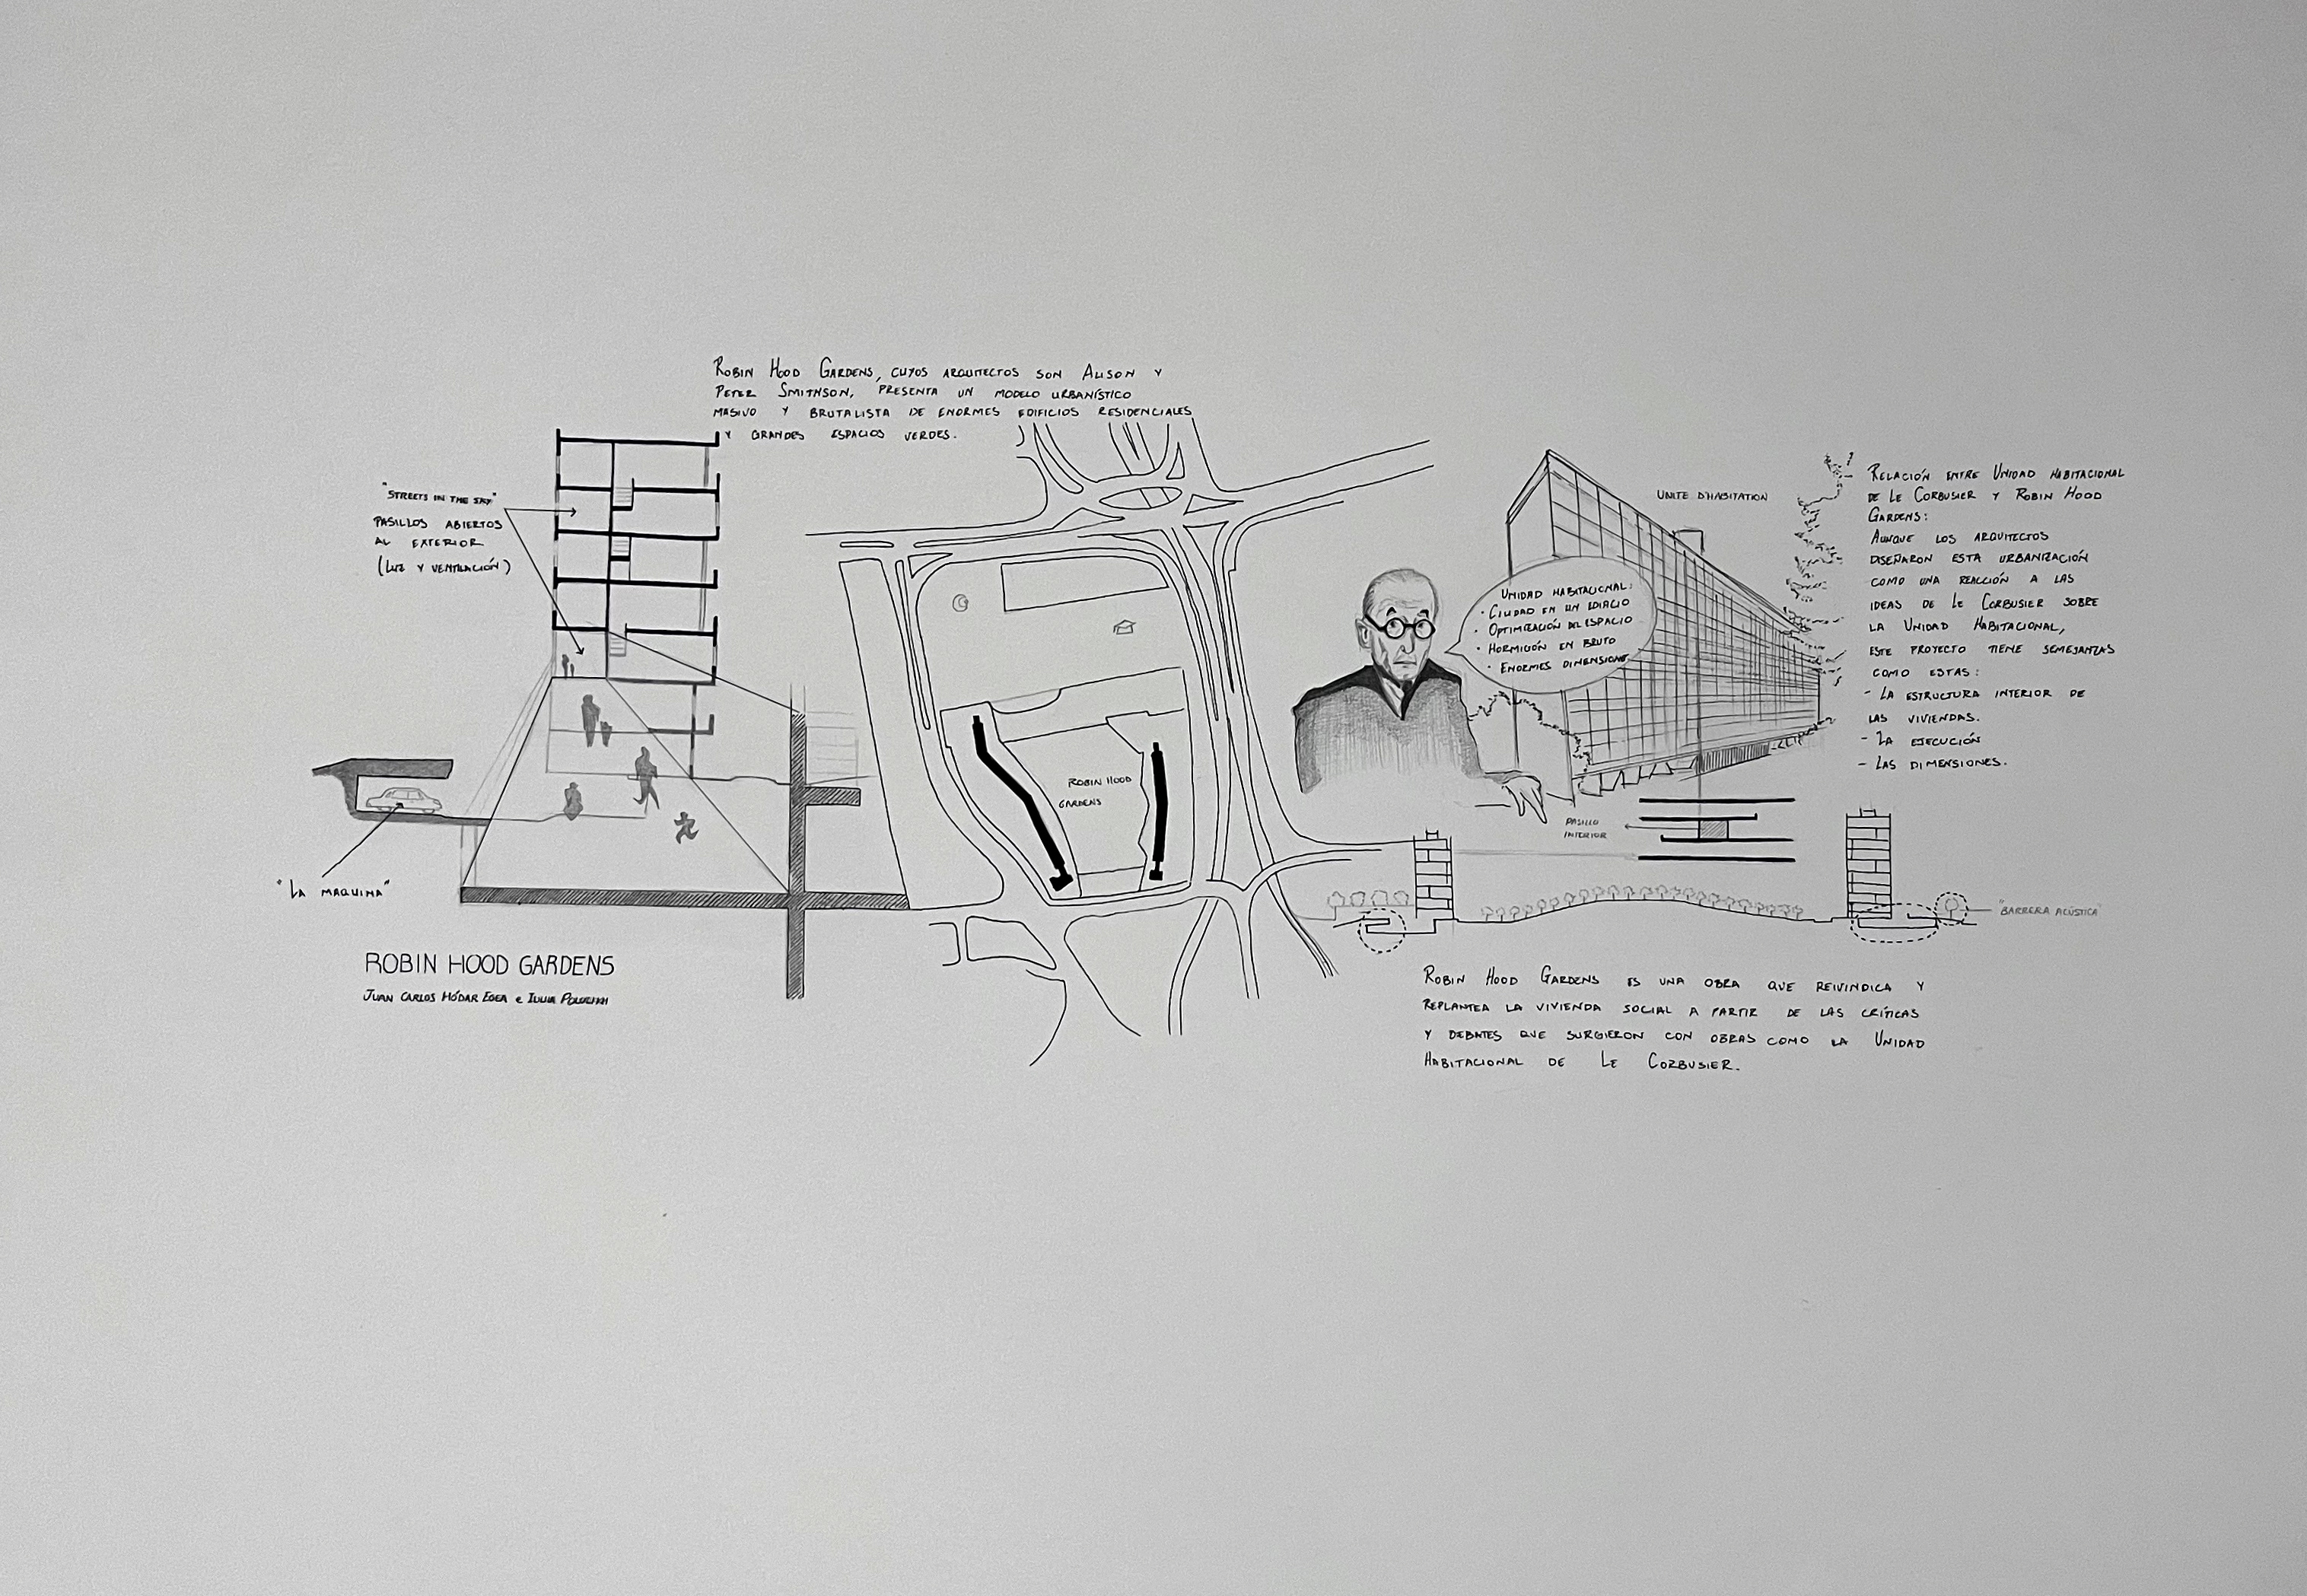 Robin Hood Gardens, cuyos arquitectos son Alison y
Peter Smithson, presenta un modelo urbanístico
masivo y brutalista de enormes edificios residenciales
y grandes espacios verdes.
"Streets in the sky"
pasillos abiertos
al exterior
(luz y ventilación)
"La maquina"
ROBIN HOOD GARDENS
Juan Carlos Hódar Egea e Iuliia
Robin Hood
Gardens
Unidad habitacional:
· Ciudad en un edificio
· Optimización del espacio
· Hormigón en bruto
· Enormes dimensione
Unite d'habitation
Pasillo
interior
Relación entre Unidad habitacional
de Le Corbusier y Robin Hood
Gardens:
Aunque los arquitectos
diseñaron esta urbanización
como una reacción a las
ideas de Le Corbusier sobre
la Unidad Habitacional,
este proyecto tiene semejanzas
como estas:
- La estructura interior de
las viviendas.
- La ejecución
- Las dimensiones.
"Barrera acústica"
Robin Hood Gardens es una obra que reivindica y
replantea la vivienda social a partir de las críticas
y debates que surgieron con obras como la Unidad
Habitacional de Le Corbusier.